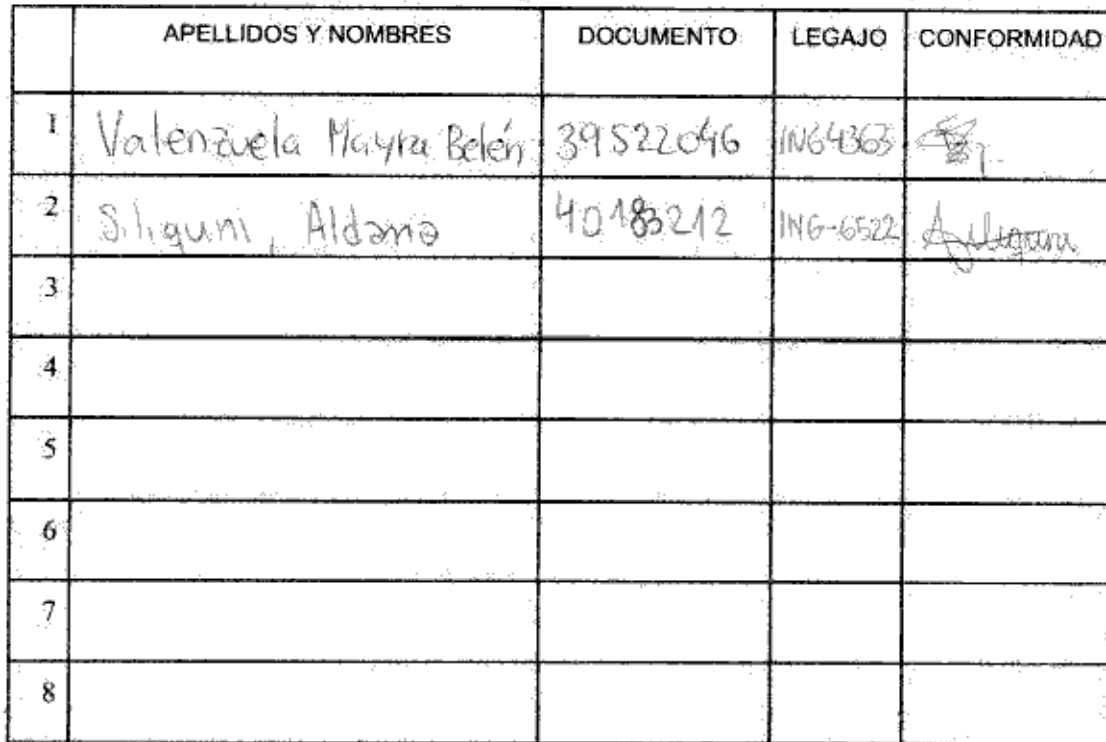 APELLIDOS Y NOMBRES DOCUMENTO LEGAJO CONFORMIDAD
1 Valenzuela Mayra Belén 39522046 ING4363
2 Siliguni, Aldana 40183212 ING-6522
3
4
5
6
7
8